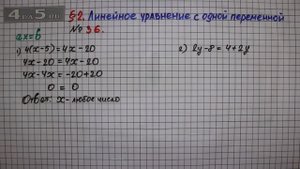 4 на 5
§2. Линейное уравнение с одной переменной
ax=b
№ 36.
1) 4(x-5)=4x-20
4x-20 = 4x-20
4x-4x = -20+20
0 = 0
Ответ: x - любое число
2) 2y-8=4+2y